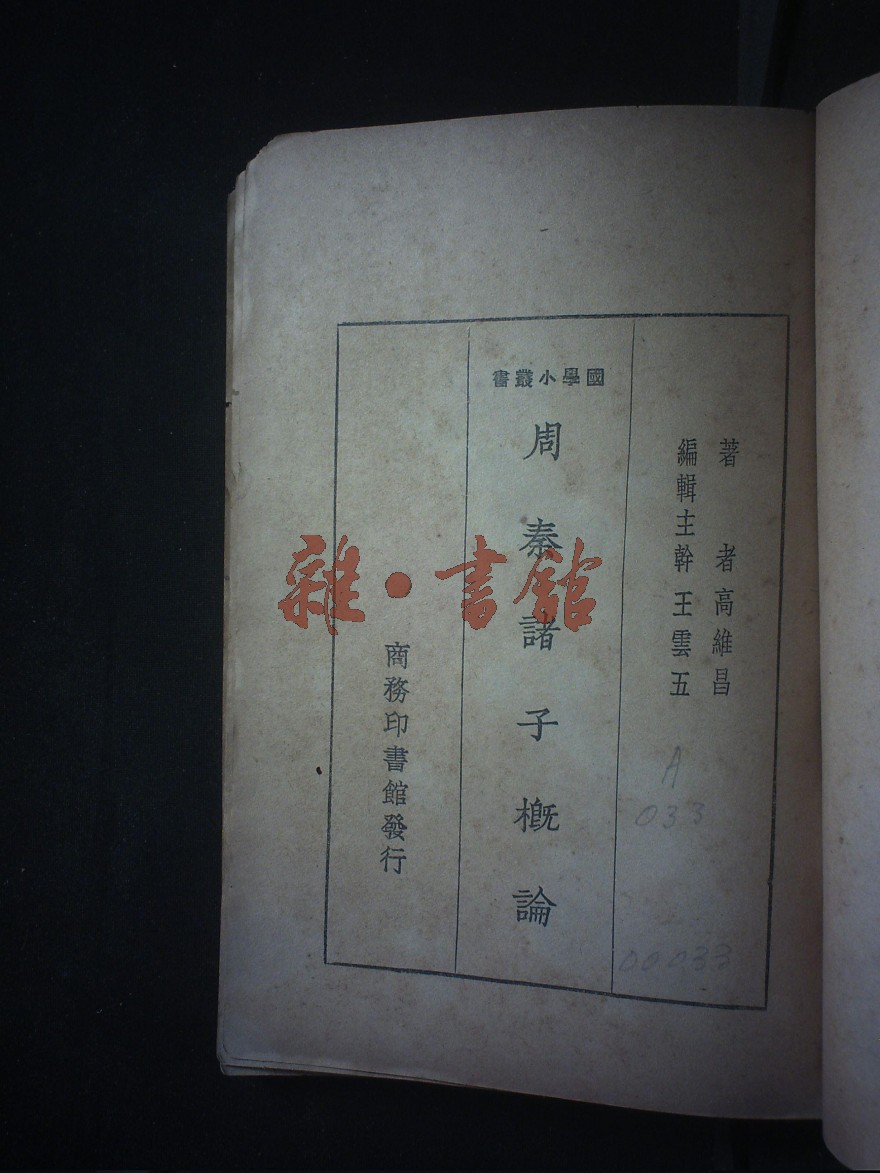 著者高維昌
編輯主幹王雲五
國學小叢書
周秦諸子概論
商務印書館發行
雜·書館
A
033
00033